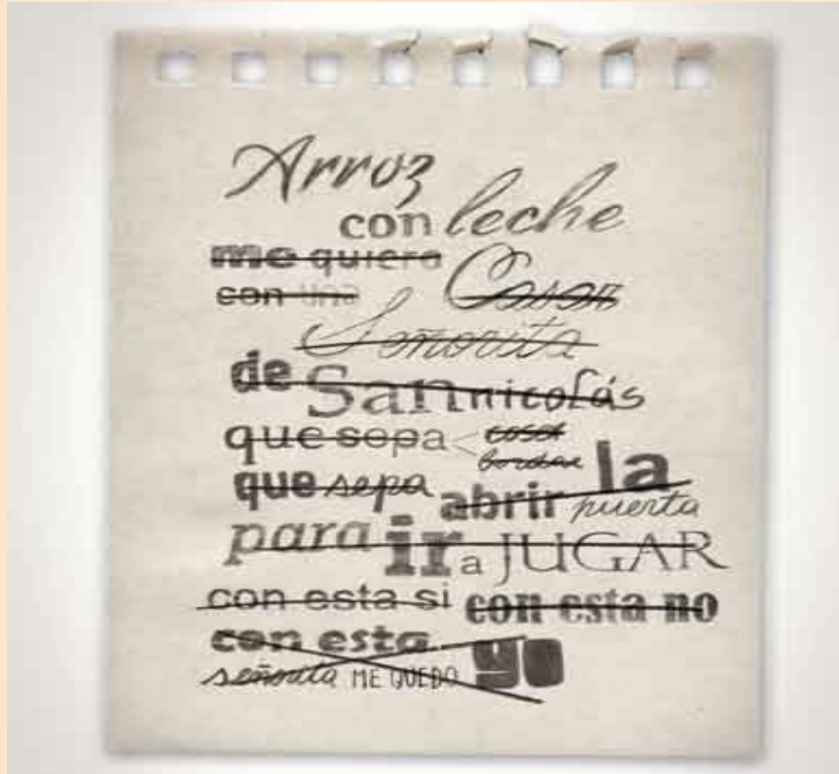 Arroz
con leche
me quiero Casar
con una
Señorita
de San nicolás
que sepa coser
bordar
que sepa abrir la puerta
para ir a JUGAR
con esta si con esta no
con esta
señorita ME QUEDO yo